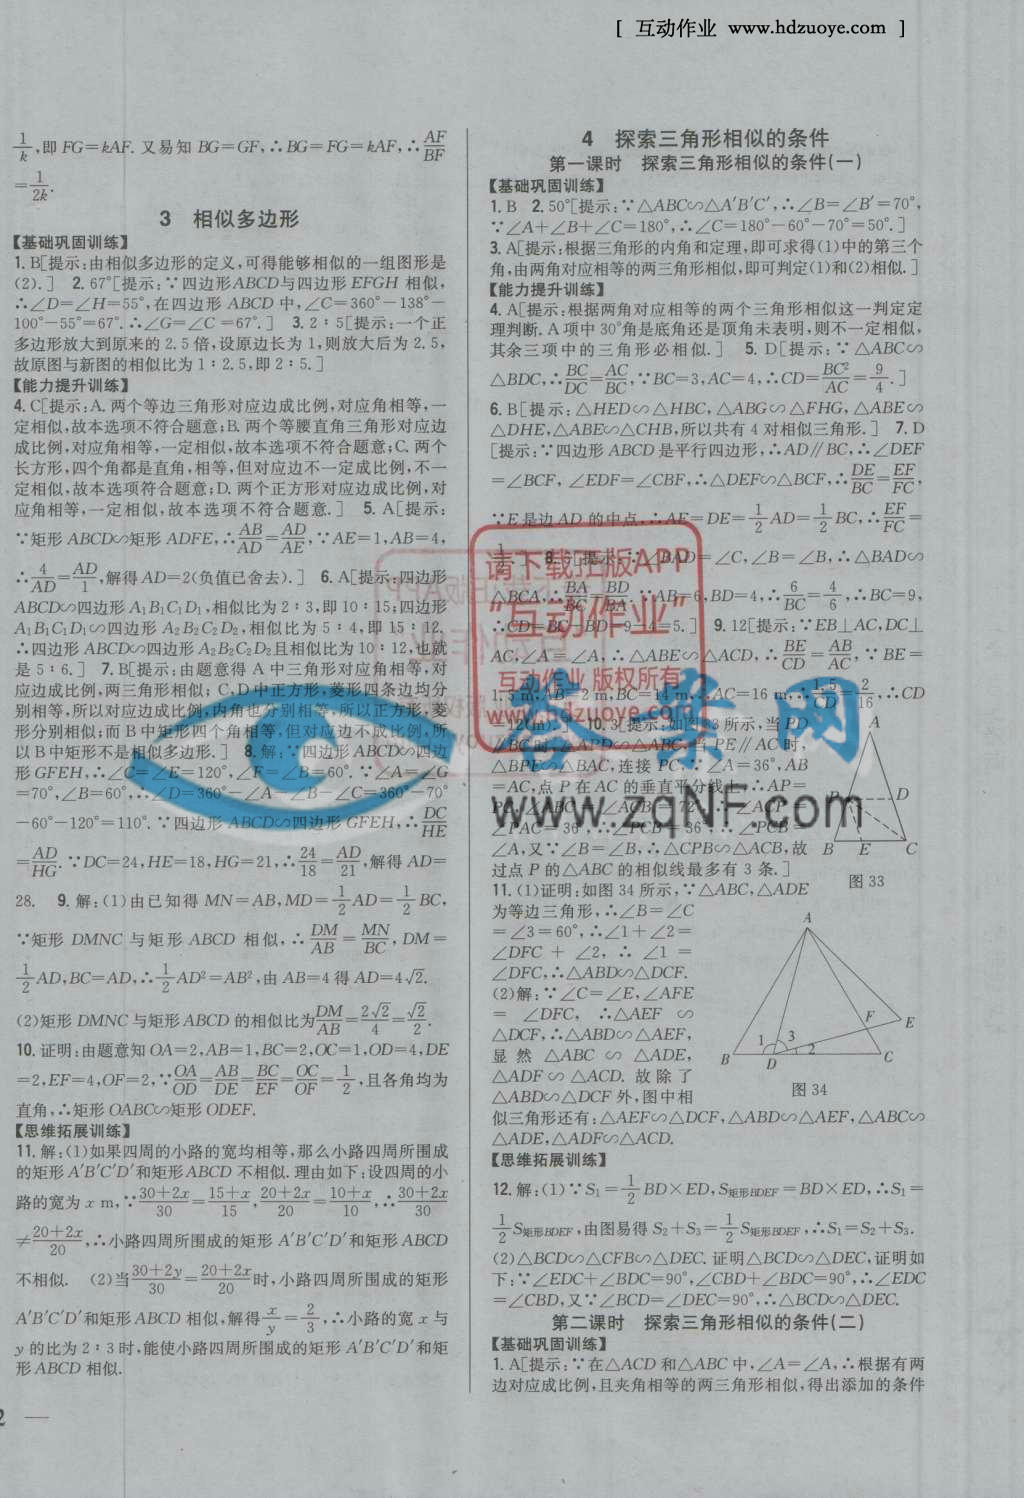 [ 互动作业 www.hdzuoye.com ]
1/k,即FG=kAF.又易知BG=GF,∴BG=FG=kAF,∴AF/BF
=1/2k.
3 相似多边形
【基础巩固训练】
1.B[提示:由相似多边形的定义,可得能够相似的一组图形是
(2).] 2.67°[提示:∵四边形ABCD与四边形EFGH相似,
∴∠D=∠H=55°,在四边形ABCD中,∠C=360°-138°-
100°-55°=67°.∴∠G=∠C=67°.] 3.2∶5[提示:一个正
多边形放大到原来的2.5倍,设原边长为1,则放大后为2.5,
故原图与新图的相似比为1∶2.5,即2∶5.]
【能力提升训练】
4.C[提示:A.两个等边三角形对应边成比例,对应角相等,一
定相似,故本选项不符合题意;B.两个等腰直角三角形对应边
成比例,对应角相等,一定相似,故本选项不符合题意;C.两个
长方形,四个角都是直角,相等,但对应边不一定成比例,不一
定相似,故本选项符合题意;D.两个正方形对应边成比例,对
应角相等,一定相似,故本选项不符合题意.] 5.A[提示:
∵矩形ABCD∽矩形ADFE,∴AB/AD=AD/AE,∵AE=1,AB=4,
∴4/AD=AD/1,解得AD=2(负值已舍去).] 6.A[提示:四边形
ABCD∽四边形A₁B₁C₁D₁,相似比为2∶3,即10∶15;四边形
A₁B₁C₁D₁∽四边形A₂B₂C₂D₂,相似比为5∶4,即15∶12.
∴四边形ABCD∽四边形A₂B₂C₂D₂且相似比为10∶12,也就
是5∶6.] 7.B[提示:由题意得A中三角形对应角相等,对
应边成比例,两三角形相似;C,D中正方形,菱形四条边均分
别相等,所以对应边成比例,内角也分别相等,所以正方形,菱
形分别相似;而B中矩形四个角相等,但对应边不成比例,所
以B中矩形不是相似多边形.] 8.解:∵四边形ABCD∽四边
形GFEH,∴∠C=∠E=120°,∠F=∠B=60°.∵∠A=∠G
=70°,∠B=60°,∴∠D=360°-∠A-∠B-∠C=360°-70°
-60°-120°=110°.∵四边形ABCD∽四边形GFEH,∴DC/HE
=AD/HG.∵DC=24,HE=18,HG=21,∴24/18=AD/21,解得AD=
28. 9.解:(1)由已知得MN=AB,MD=1/2AD=1/2BC,
∵矩形DMNC与矩形ABCD相似,∴DM/AB=MN/BC,DM=
1/2AD,BC=AD,∴1/2AD²=AB²,由AB=4得AD=4√2.
(2)矩形DMNC与矩形ABCD的相似比为DM/AB=2√2/4=√2/2.
10.证明:由题意知OA=2,AB=1,BC=2,OC=1,OD=4,DE
=2,EF=4,OF=2,∵OA/OD=AB/DE=BC/EF=OC/OF=1/2,且各角均为
直角,∴矩形OABC∽矩形ODEF.
【思维拓展训练】
11.解:(1)如果四周的小路的宽均相等,那么小路四周所围成
的矩形A′B′C′D′和矩形ABCD不相似.理由如下:设四周的小
路的宽为x m,∵30+2x/30=15+x/15,20+2x/20=10+x/10,∴30+2x/30
≠20+2x/20,∴小路四周所围成的矩形A′B′C′D′和矩形ABCD
不相似. (2)当30+2y/30=20+2x/20时,小路四周所围成的矩形
A′B′C′D′和矩形ABCD相似,解得x/y=2/3,∴小路的宽x与
y的比为2∶3时,能使小路四周所围成的矩形A′B′C′D′和矩
形ABCD相似.
4 探索三角形相似的条件
第一课时 探索三角形相似的条件(一)
【基础巩固训练】
1.B 2.50°[提示:∵△ABC∽△A′B′C′,∴∠B=∠B′=70°,
∵∠A+∠B+∠C=180°,∴∠C=180°-60°-70°=50°.]
3.A[提示:根据三角形的内角和定理,即可求得(1)中的第三个
角,由两角对应相等的两三角形相似,即可判定(1)和(2)相似.]
【能力提升训练】
4.A[提示:根据两角对应相等的两个三角形相似这一判定定
理判断.A项中30°角是底角还是顶角未表明,则不一定相似,
其余三项中的三角形必相似.] 5.D[提示:∵△ABC∽
△BDC,∴BC/DC=AC/BC,∵BC=3,AC=4,∴CD=BC²/AC=9/4.]
6.B[提示:△HED∽△HBC,△ABG∽△FHG,△ABE∽
△DHE,△ABE∽△CHB,所以共有4对相似三角形.] 7.D
[提示:∵四边形ABCD是平行四边形,∴AD∥BC,∴∠DEF
=∠BCF,∠EDF=∠CBF,∴△DEF∽△BCF,∴DE/BC=EF/FC,
∵E是边AD的中点,∴AE=DE=1/2AD=1/2BC,∴EF/FC=
1/2.] 8.5[提示:∵∠BAD=∠C,∠B=∠B,∴△BAD∽
△BCA,∴BA/BC=BD/BA.∵AB=6,BD=4,∴6/BC=4/6,∴BC=9,
∴CD=BC-BD=9-4=5.] 9.12[提示:∵EB⊥AC,DC⊥
AC,∠A=∠A,∴△ABE∽△ACD,∴BE/CD=AB/AC,∵BE=
1.5 m,AB=2 m,BC=14 m,∴AC=16 m,∴1.5/CD=2/16,∴CD
=12(m).] 10.3[提示:如图33所示,当PD
∥BC时,△APD∽△ABC,当PE∥AC时,
△BPE∽△BAC,连接PC,∵∠A=36°,AB
=AC,点P在AC的垂直平分线上,∴AP=
PC,∠ABC=∠ACB=72°,∴∠ACP=
∠PAC=36°,∴∠PCB=36°,∴∠PCB=
∠A,又∵∠B=∠B,∴△CPB∽△ACB,故
过点P的△ABC的相似线最多有3条.]
A
P
D
B E C
图33
11.(1)证明:如图34所示,∵△ABC,△ADE
为等边三角形,∴∠B=∠C
=∠3=60°,∴∠1+∠2=
∠DFC+∠2,∴∠1=
∠DFC,∴△ABD∽△DCF.
(2)解:∵∠C=∠E,∠AFE
=∠DFC,∴△AEF∽
△DCF,∴△ABD∽△AEF,
显然△ABC∽△ADE,
△ADF∽△ACD.故除了
△ABD∽△DCF外,图中相
似三角形还有:△AEF∽△DCF,△ABD∽△AEF,△ABC∽
△ADE,△ADF∽△ACD.
A
F
E
1 3
2
B D C
图34
【思维拓展训练】
12.解:(1)∵S₁=1/2BD×ED,S矩形BDEF=BD×ED,∴S₁=
1/2S矩形BDEF,由图易得S₂+S₃=1/2S矩形BDEF,∴S₁=S₂+S₃.
(2)△BCD∽△CFB∽△DEC.证明△BCD∽△DEC,证明如
下:∵∠EDC+∠BDC=90°,∠CBD+∠BDC=90°,∴∠EDC
=∠CBD,又∵∠BCD=∠DEC=90°,∴△BCD∽△DEC.
第二课时 探索三角形相似的条件(二)
【基础巩固训练】
1.A[提示:∵在△ACD和△ABC中,∠A=∠A,∴根据有两
边对应成比例,且夹角相等的两三角形相似,得出添加的条件
2 —
请下载正版APP
"互动作业"
互动作业 版权所有
www.hdzuoye.com
www.zqNF.com